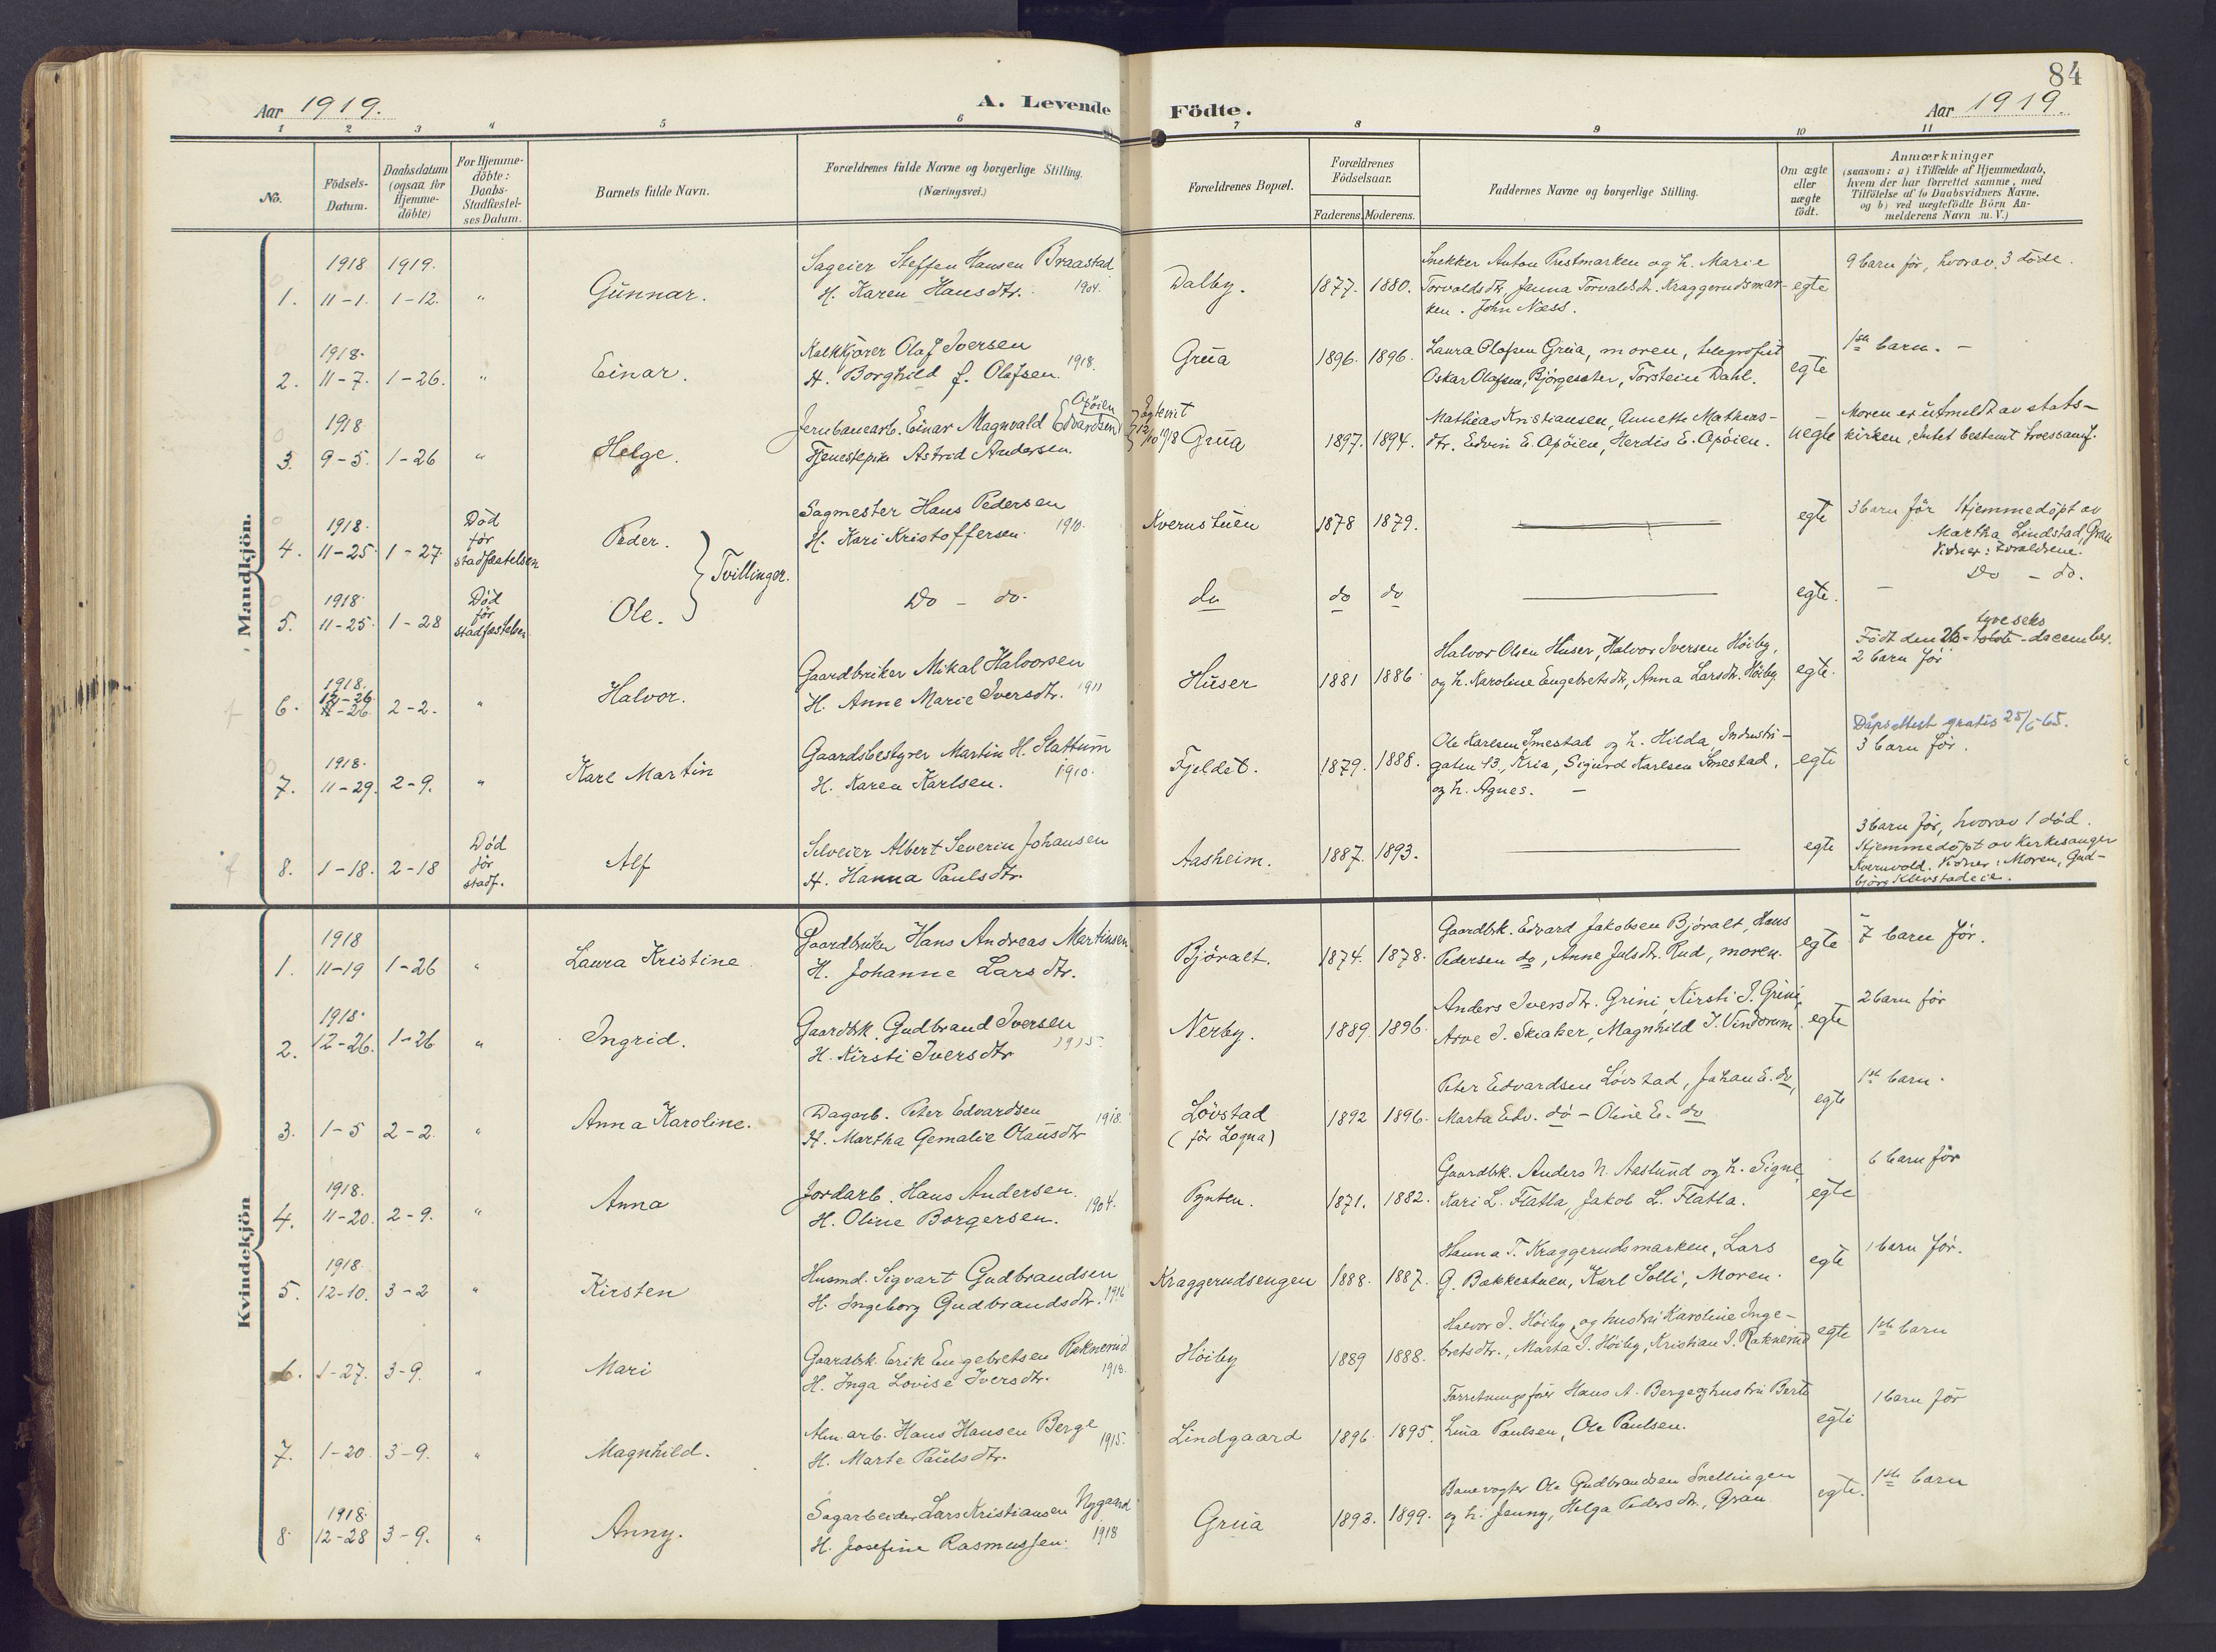 84
Aar 1919.
A. Levende Födte.
Aar 1919.
1 2 3 4 5 6 7 8 9 10 11
No.
Födsels-
Datum.
Daabsdatum
(ogsaa for
Hjemme-
döbte)
For Hjemme-
döbte:
Daabs-
Stadfæstel-
ses Datum.
Barnets fulde Navn.
Forældrenes fulde Navne og borgerlige Stilling.
(Næringsvei.)
Forældrenes Bopæl.
Forældrenes
Födselsaar.
Faderens. Moderens.
Faddernes Navne og borgerlige Stilling.
Om ægte
eller
uægte
födt.
Anmærkninger
(saasom: a) i Tilfælde af Hjemmedaab,
hvem der har forrettet samme, med
Tilföielse af to Daabsvidners Navne,
og b) ved uægtefödte Börn An-
melderens Navn m. V.)
Mandkjön.
1. 1918 11-1. 1919. 1-12. "
Gunnar.
Sageier Steffen Hansen Braastad
H. Karen Hansdtr. 1904.
Dalby. 1877. 1880.
Snekker Anton Prestmarken og h. Marie
Torvaldsdtr, Jenna Torvaldsdtr. Kraggerudsmar-
ken. John Næss.
egte
9 barn för, hvorav 3 döde.
2. 1918. 11-7. 1-26. "
Einar.
Kalkkjörer Olaf Iversen
H. Borghild f. Olafsen. 1918.
Grua 1896. 1896.
Laura Olafsen Grua, moren, telegrafist
Oskar Olafsen, Björgeseter, Torstein Dahl.
egte
1ste barn. -
3. 1918 9-5. 1-26 "
Helge.
Jernbanearb. Einar Magnvald Edvardsen Apöien
Tjenestepike Astrid Andersen.
Egteviet
12/10 1918 Grua 1897. 1894.
Mathias Kristiansen, Annette Mathias-
dtr. Edvin E. Apöien, Herdis E. Apöien.
uegte
Moren er utmeldt av stats-
kirken, intet bestemt troessamf.
4. 1918. 11-25. 1-27.
Död
för
stadfæstelsen
Peder.
Tvillinger.
Sagmester Hans Pedersen
H. Kari Kristoffersen. 1910.
Kvernstuen 1878 1879.
egte
3 barn för Hjemmedöpt av
Martha Lindstad, Gran
Vidner: Forældrene.
5. 1918 11-25. 1-28
Död
för
stadfæstelsen
Ole.
Do - do.
do do do
egte.
Do - do.
6. 1918. 12-26 11-26. 2-2. "
Halvor.
Gaardbruker Mikal Halvorsen
H. Anne Marie Iversdtr. 1911
Huser 1881 1886
Halvor Olsen Huser, Halvor Iversen Höiby,
og h. Karoline Engebretsdtr, Anna Larsdtr. Höiby
egte.
tyveseks
Födt den 26- december.
2 barn för
7. 1918. 11-29. 2-9. "
Karl Martin
Gaardsbestyrer Martin H. Slattum
H. Karen Karlsen. 1910.
Fjeldet. 1879. 1888.
Ole Karlsen Smestad og h. Hilda, Industri-
gaten 43, Kria, Sigurd Karlsen Smestad,
og h. Agnes. -
egte
Dåpsattest gratis 25/6-65.
3 barn för.
8. 1-18. 2-18
Död
för
stadf.
Alf
Selveier Albert Severin Johansen
H. Hanna Paulsdtr.
Aasheim. 1887. 1893.
egte
3 barn för, hvorav 1 död.
Hjemmedöpt av Kirkesanger
Kvernvold. Vidner: Moren, Gud-
björg Klevstadeie.
Kvindekjön
1. 1918 11-19 1-26 "
Laura Kristine
Gaardbruker Hans Andreas Martinsen
H. Johanne Larsdtr.
Björalt. 1874. 1878.
Gaardbrk. Edvard Jakobsen Björalt, Hans
Pedersen do, Anne Julsdtr. Rud, moren.
egte
7 barn för.
2. 1918. 12-26. 1-26 "
Ingrid.
Gaardbrk. Gudbrand Iversen
H. Kirsti Iversdtr 1915.
Nerby. 1889. 1896.
Anders Iversdtr. Grini, Kirsti I. Grini,
Arve I. Skiaker, Magnhild I. Vindorum
egte
2 barn för
3. 1-5 2-2. "
Anna Karoline.
Dagarb. Peter Edvardsen
H. Martha Gemalie Olausdtr 1918.
Lövstad
(för Logna) 1892 1896.
Peter Edvardsen Lövstad, Johan E. do,
Marta Edv. do - Oline E. do
egte
1ste barn.
4. 1918. 11-20. 2-9. "
Anna
Jordarb. Hans Andersen.
H. Oline Borgersen. 1904.
Pynten. 1871. 1882.
Gaardbrk. Anders N. Aaslund og h. Signe,
Kari L. Flatla, Jakob L. Flatla.
egte
6 barn för
5. 1918. 12-10. 3-2 "
Kirsten
Husmd. Sigvart Gudbrandsen
H. Ingeborg Gudbrandsdtr. 1916
Kraggerudsengen 1888. 1887.
Hanna T. Kraggerudsmarken, Lars
G. Bakkestuen, Karl Solli, Moren.
egte
1 barn för.
6. 1-27. 3-9. "
Mari
Gaardbrk. Erik Engebretsen Raknerud
H. Inga Lovise Iversdtr. 1918.
Höiby 1889 1888.
Halvor I. Höiby, og hustru Karoline Inge-
bretsdtr., Marta I. Höiby, Kristian I. Raknerud
egte
1ste barn
7. 1-20 3-9. "
Magnhild.
Alm. arb. Hans Hansen Berge
H. Marte Paulsdtr. 1915.
Lindgaard 1896. 1895.
Forretningsförer Hans A. Berge og hustru Berte
Lina Paulsen, Ole Paulsen.
egte
1 barn för
8. 1918. 12-28 3-9. "
Anny.
Sagarbeider Lars Kristiansen Nygaard
H. Josefine Rasmussen. 1918
Grua 1893. 1899.
Banevogter Ole Gudbrandsen Snellingen
og h. Jenny, Helga Pedersdtr., Gran
egte.
1ste barn